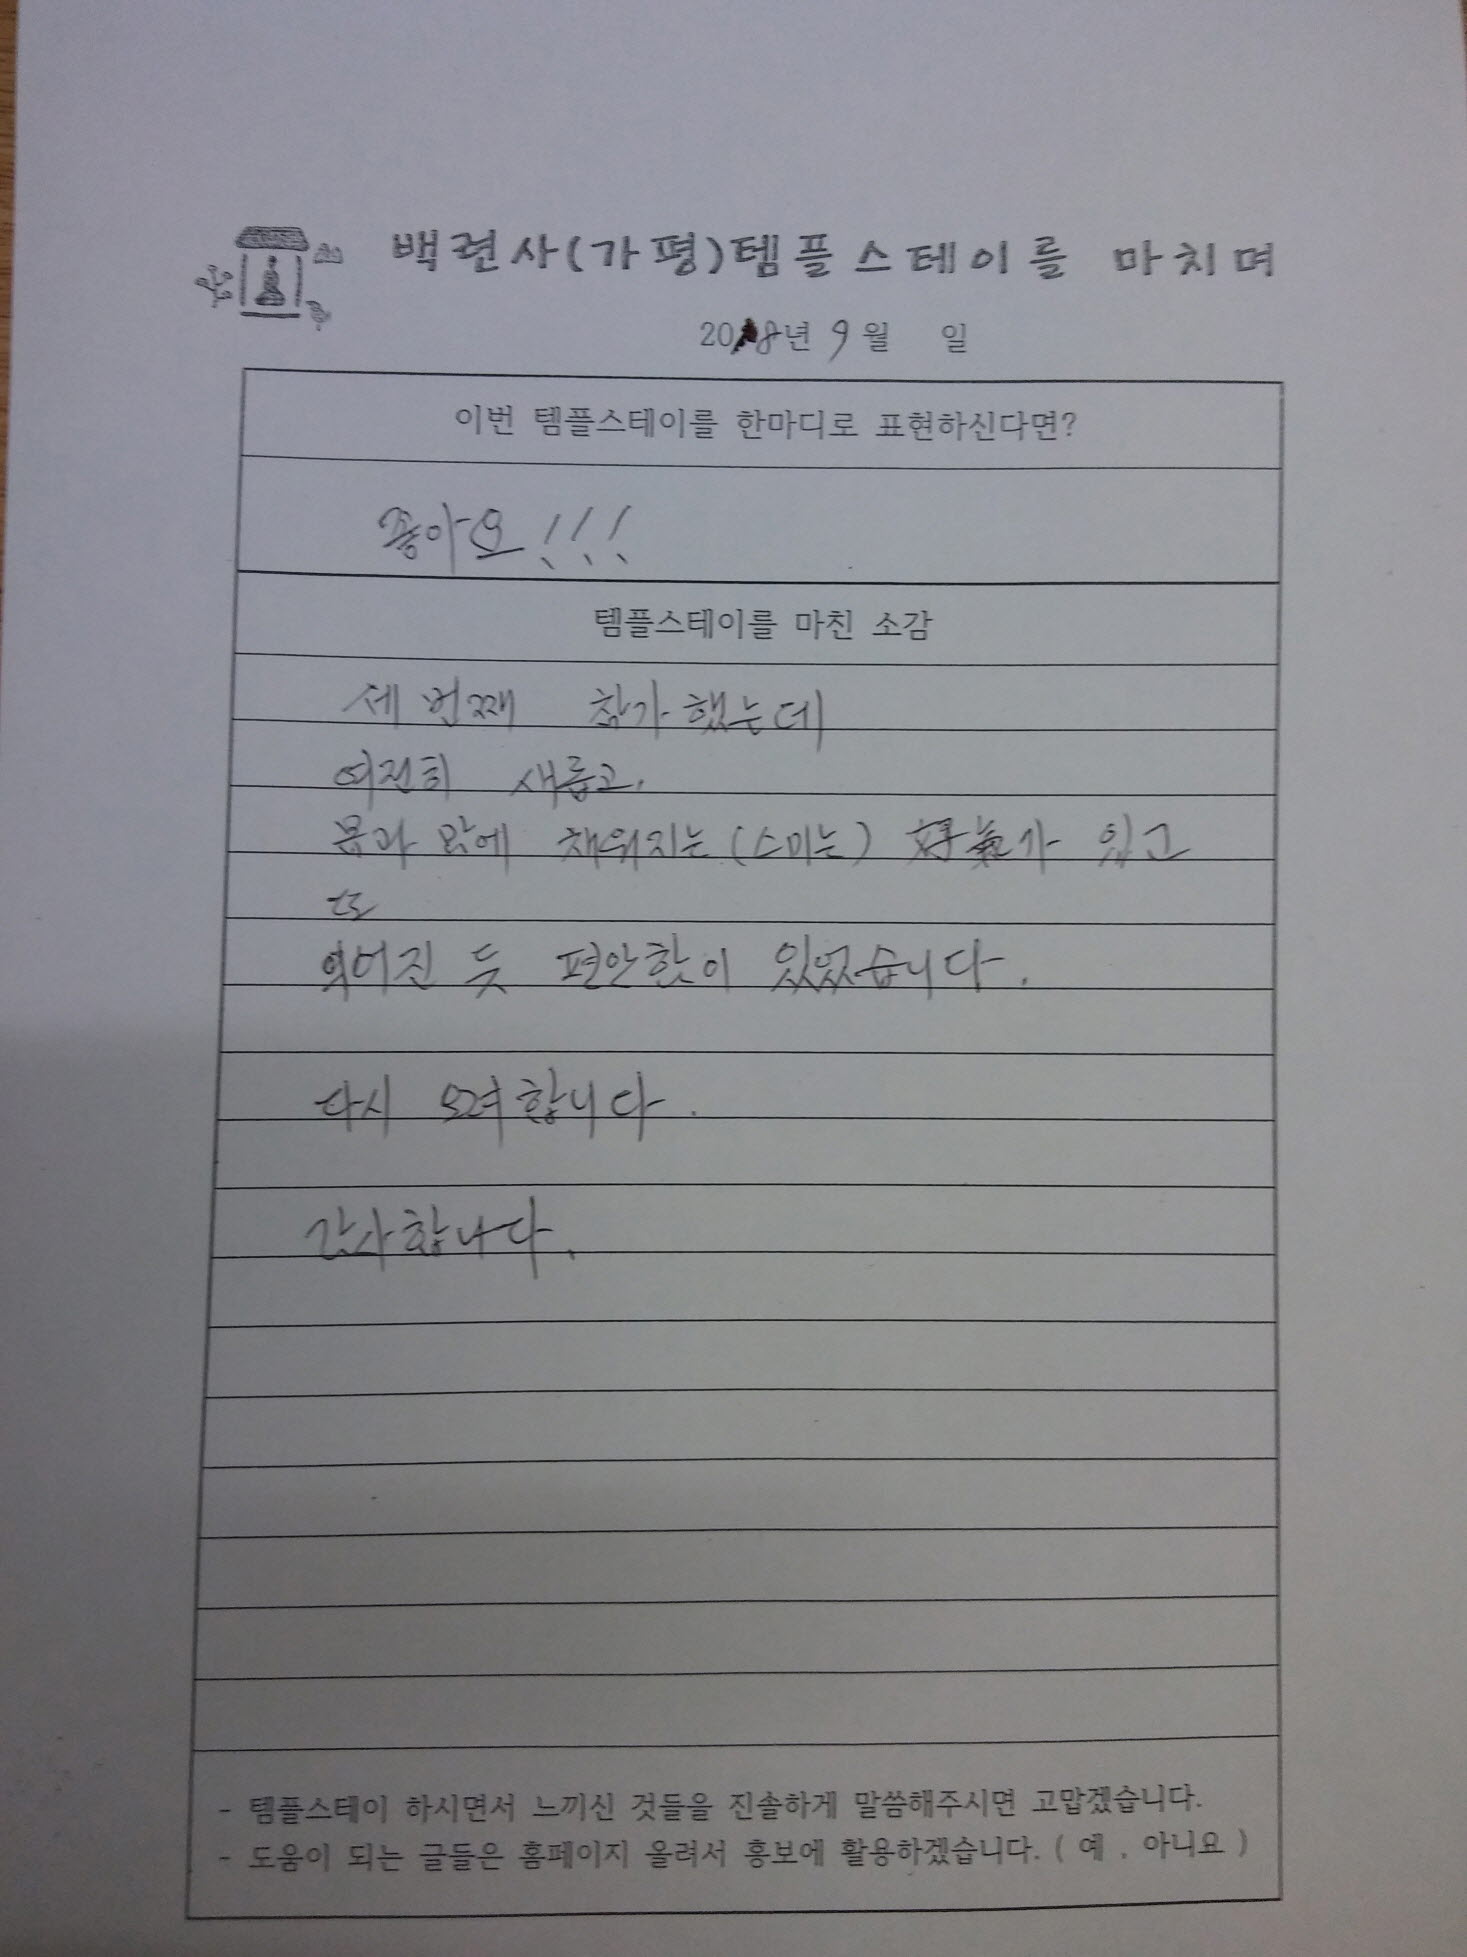 백련사(가평)템플스테이를 마치며
2018년 9월 일
이번 템플스테이를 한마디로 표현하신다면?
좋아요!!!
템플스테이를 마친 소감
세번째 참가했는데
여전히 새롭고,
몸과 맘에 채워지는 (스미는) 好氣가 있고
또
익어진 듯 편안함이 있었습니다.
다시 오려합니다.
감사합니다.
- 템플스테이 하시면서 느끼신 것들을 진솔하게 말씀해주시면 고맙겠습니다.
- 도움이 되는 글들은 홈페이지 올려서 홍보에 활용하겠습니다. ( 예 . 아니요 )